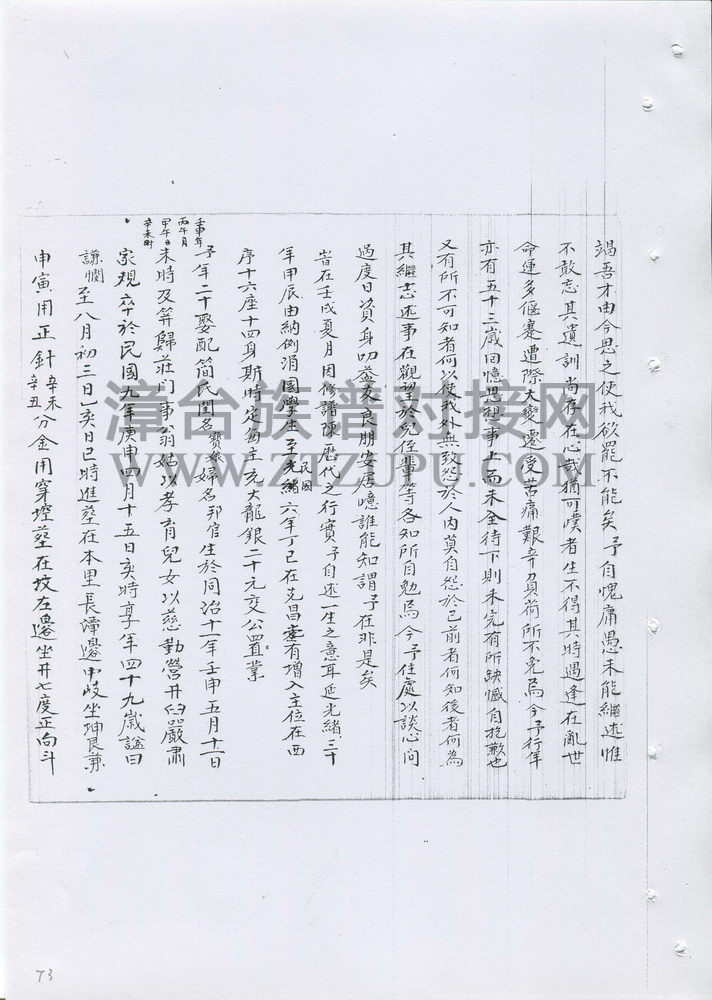 竭吾才由今思之使我欲罷不能矣予自愧庸愚未能繼述惟
不敢忘其遺訓尚存在心哉猶可嘆者生不得其時遇逢在亂世
命運多偃蹇遭際大變遷受苦痛艱辛負荷所不免焉今予行年
亦有五十三歲回憶思想事上而未全待下則未完有所缺憾自抱歉也
又有所不可知者何以使我外無致怨於人內莫自怨於己前者何知後者何為
其繼志述事在觀望於兒侄輩等各知所自勉焉今予住處以談心間
過度日資身叨益友良朋安居憶誰能知謂予在非是矣
昔在壬戌夏月因修譜陳歷代之行實予自述一生之意耳延光緒三十
年甲辰由納例捐國學生至光緒民國六年丁巳在文昌堂有增入主位在西
序十六座十四身斯時定每主充大龍銀二十元交公置業
予年二十娶配簡氏閨名寶娘婦名邦官生於同治十一年壬申五月十一日
壬申年
丙午月
甲午日
辛未時
未時及笄歸莊門事翁姑以孝育兒女以慈勤營井臼嚴肅
家規卒於民國九年庚申四月十五日亥時享年四十九歲謚曰
謙憫至八月初三日亥日巳時進塟在本里長潭邊中岐坐坤艮兼
申寅用正針辛未辛丑分金用穿壙塟在墳左邊坐井七度正向斗
73
漳台族谱对接网
WWW.ZTZUPU.COM